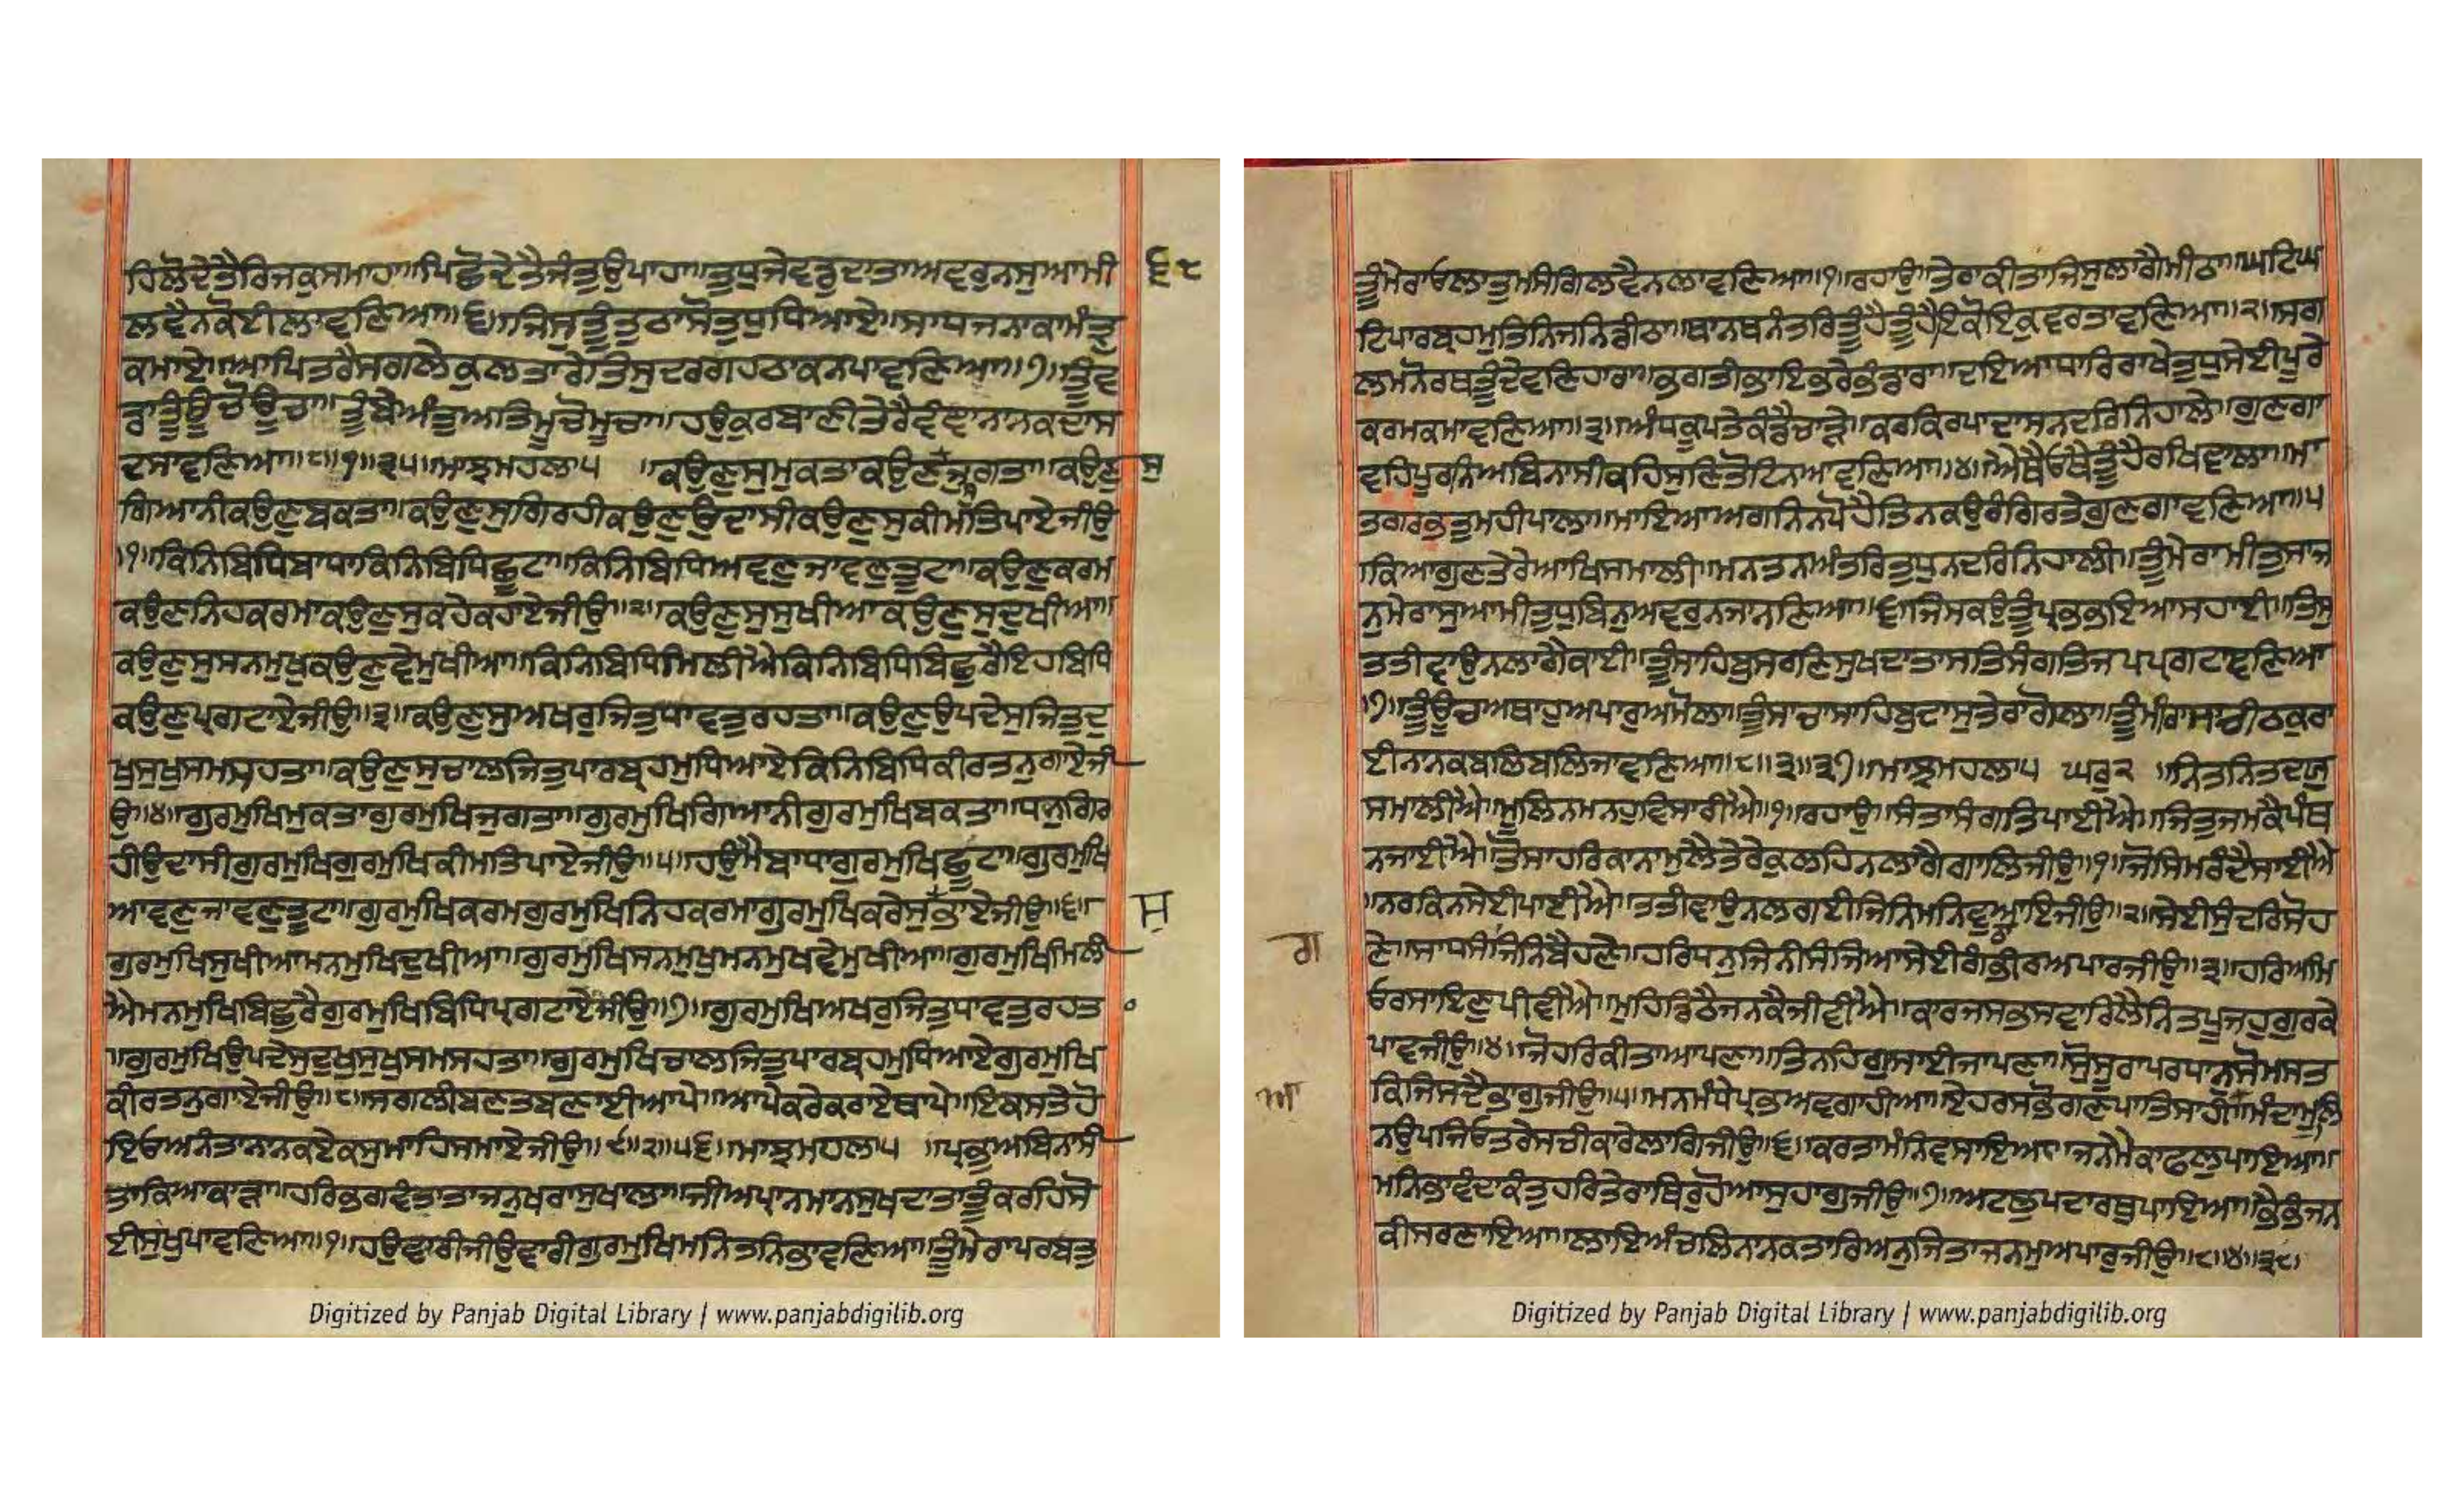 ਹਿਲੋਦੇਤੈਰਿਜਕੁਸਮਾਹਾ॥ਪਿਛੋਦੇਤੈਜੰਤੁਉਪਾਹਾ॥ਤੁਧੁਜੇਵਡੁਦਾਤਾਅਵਰੁਨਸੁਆਮੀ ੬੮
ਲਵੈਨਕੋਈਲਾਵਣਿਆ॥੬॥ਜਿਸੁਤੂੰਤੁਠਾਸੋਤੁਧੁਧਿਆਏ॥ਸਾਧਜਨਾਕਾਮੰਤ੍ਰੁ
ਕਮਾਏ॥ਆਪਿਤਰੈਸਗਲੇਕੁਲਤਾਰੇਤਿਸੁਦਰਗਹਠਾਕਨਪਾਵਣਿਆ॥੭॥ਤੂੰਵ
ਡਾਤੂੰਊਚੋਊਚਾ॥ਤੂੰਬੇਅੰਤੁਅਤਿਮੂਚੋਮੂਚਾ॥ਹਉਕੁਰਬਾਣੀਤੇਰੈਵੰਞਾਨਾਨਕਦਾਸ
ਦਸਾਵਣਿਆ॥੮॥੧॥੩੫॥ਮਾਝਮਹਲਾ੫ ॥ਕਉਣੁਸੁਮੁਕਤਾਕਉਣੁਜੁਗਤਾ॥ਕਉਣੁ ਸੁ
ਗਿਆਨੀਕਉਣੁਬਕਤਾ॥ਕਉਣੁਸੁਗਿਰਹੀਕਉਣੁਉਦਾਸੀਕਉਣੁਸੁਕੀਮਤਿਪਾਏਜੀਉ
॥੧॥ਕਿਨਿਬਿਧਿਬਾਧਾਕਿਨਿਬਿਧਿਛੂਟਾ॥ਕਿਨਿਬਿਧਿਅਵਣੁਜਾਵਣੁਤੂਟਾ॥ਕਉਣੁਕਰਮ
ਕਉਣਨਿਹਕਰਮਾਕਉਣੁਸੁਕਹੇਕਹਾਏਜੀਉ॥੨॥ਕਉਣੁਸੁਸੁਖੀਆਕਉਣੁਸੁਦੁਖੀਆ॥
ਕਉਣੁਸੁਸਨਮੁਖੁਕਉਣੁਵੇਮੁਖੀਆ॥ਕਿਨਿਬਿਧਿਮਿਲੀਐਕਿਨਿਬਿਧਿਬਿਛੁਰੈਇਹਬਿਧਿ
ਕਉਣੁਪ੍ਰਗਟਾਏਜੀਉ॥੩॥ਕਉਣੁਸੁਅਖਰੁਜਿਤੁਧਾਵਤੁਰਹਤਾ॥ਕਉਣੁਉਪਦੇਸੁਜਿਤੁਦੁ
ਖੁਸੁਖੁਸਮਸਹਤਾ॥ਕਉਣੁਸੁਚਾਲਜਿਤੁਪਾਰਬ੍ਰਹਮੁਧਿਆਏਕਿਨਿਬਿਧਿਕੀਰਤਨੁਗਾਏਜੀ
ਉ॥੪॥ਗੁਰਮੁਖਿਮੁਕਤਾਗੁਰਮੁਖਿਜੁਗਤਾ॥ਗੁਰਮੁਖਿਗਿਆਨੀਗੁਰਮੁਖਿਬਕਤਾ॥ਧਨੁਗਿਰ
ਹੀਉਦਾਸੀਗੁਰਮੁਖਿਗੁਰਮੁਖਿਕੀਮਤਿਪਾਏਜੀਉ॥੫॥ਹਉਮੈਬਾਧਾਗੁਰਮੁਖਿਛੂਟਾ॥ਗੁਰਮੁਖਿ
ਆਵਣੁਜਾਵਣੁਤੂਟਾ॥ਗੁਰਮੁਖਿਕਰਮਗੁਰਮੁਖਿਨਿਹਕਰਮਾਗੁਰਮੁਖਿਕਰੇਸੁਭਾਏਜੀਉ॥੬॥ ਸੁ
ਗੁਰਮੁਖਿਸੁਖੀਆਮਨਮੁਖਿਦੁਖੀਆ॥ਗੁਰਮੁਖਿਸਨਮੁਖੁਮਨਮੁਖਵੇਮੁਖੀਆ॥ਗੁਰਮੁਖਿਮਿਲੀ
ਐਮਨਮੁਖਿਬਿਛੁਰੈਗੁਰਮੁਖਿਬਿਧਿਪ੍ਰਗਟਾਏਜੀਉ॥੭॥ਗੁਰਮੁਖਿਅਖਰੁਜਿਤੁਧਾਵਤੁਰਹਤ
॥ਗੁਰਮੁਖਿਉਪਦੇਸੁਦੁਖੁਸੁਖੁਸਮਸਹਤਾ॥ਗੁਰਮੁਖਿਚਾਲਜਿਤੁਪਾਰਬ੍ਰਹਮੁਧਿਆਏਗੁਰਮੁਖਿ
ਕੀਰਤਨੁਗਾਏਜੀਉ॥੮॥ਸਗਲੀਬਣਤਬਣਾਈਆਪੇ॥ਆਪੇਕਰੇਕਰਾਏਥਾਪੇ॥ਇਕਸਤੇਹੋ
ਇਓਅਨੰਤਾਨਾਨਕਏਕਸੁਮਾਹਿਸਮਾਏਜੀਉ॥੯॥੨॥੫੬॥ਮਾਝਮਹਲਾ੫ ॥ਪ੍ਰਭੁਅਬਿਨਾਸੀ
ਤਾਕਿਆਕਾੜਾ॥ਹਰਿਭਗਵੰਤੁਤਾਜਨੁਖਰਾਸੁਖਾਲਾ॥ਜੀਅਪ੍ਰਾਨਮਾਨਸੁਖਦਾਤਾਤੂੰਕਰਹਿਸੋ
ਈਸੁਖੁਪਾਵਣਿਆ॥੧॥ਹਉਵਾਰੀਜੀਉਵਾਰੀਗੁਰਮੁਖਿਮਨਿਤਨਿਭਾਵਣਿਆ॥ਤੂੰਮੇਰਾਪਰਬਤੁ
Digitized by Panjab Digital Library | www.panjabdigilib.org
ਤੂੰਮੇਰਾਓਲਾਤੁਮਸੰਗਿਲਵੈਨਲਾਵਣਿਆ॥੧॥ਰਹਾਉ॥ਤੇਰਾਕੀਤਾਜਿਸੁਲਾਗੈਮੀਠਾ॥ਘਟਿਘ
ਟਿਪਾਰਬ੍ਰਹਮੁਤਿਨਿਜਨਿਡੀਠਾ॥ਥਾਨਥਨੰਤਰਿਤੂੰਹੈਤੂੰਹੈਇਕੋਇਕੁਵਰਤਾਵਣਿਆ॥੨॥ਸਗ
ਲਮਨੋਰਥਤੂੰਦੇਵਣਿਹਾਰਾ॥ਭਗਤੀਭਾਇਭਰੇਭੰਡਾਰਾ॥ਦਇਆਧਾਰਿਰਾਖੇਤੁਧੁਸੇਈਪੂਰੇ
ਕਰਮਕਮਾਵਣਿਆ॥੩॥ਅੰਧਕੂਪਤੇਕੰਢੈਚਾੜੇ॥ਕਰਕਿਰਪਾਦਾਸਨਦਰਿਨਿਹਾਲੇ॥ਗੁਣਗਾ
ਵਹਿਪੂਰਨਿਅਬਿਨਾਸੀਕਹਿਸੁਣਿਤੋਟਿਨਆਵਣਿਆ॥੪॥ਐਥੈਓਥੈਤੂੰਹੈਰਖਿਵਾਲਾ॥ਮਾ
ਤਗਰਭਤੁਮਹੀਪਾਲਾ॥ਮਾਇਆਅਗਨਿਨਪੋਹੈਤਿਨਕਉਰੰਗਿਰਤੇਗੁਣਗਾਵਣਿਆ॥੫
॥ਕਿਆਗੁਣਤੇਰੇਆਖਿਸਮਾਲੀ॥ਮਨਤਨਅੰਤਰਿਤੁਧੁਨਦਰਿਨਿਹਾਲੀ॥ਤੂੰਮੇਰਾਮੀਤੁਸਾਜ
ਨੁਮੇਰਾਸੁਆਮੀਤੁਧੁਬਿਨੁਅਵਰੁਨਜਾਨਣਿਆ॥੬॥ਜਿਸਕਉਤੂੰਪ੍ਰਭਭਇਆਸਹਾਈ॥ਤਿਸੁ
ਤਤੀਵਾਉਨਲਾਗੈਕਾਈ॥ਤੂੰਸਾਹਿਬੁਸਰਣਿਸੁਖਦਾਤਾਸਤਿਸੰਗਤਿਜਪਪ੍ਰਗਟਾਵਣਿਆ
॥੭॥ਤੂੰਊਚਾਅਥਾਹੁਅਪਾਰੁਅਮੋਲਾ॥ਤੂੰਸਾਚਾਸਾਹਿਬੁਦਾਸੁਤੇਰਾਗੋਲਾ॥ਤੂੰਮੀਰਾਸਾਚੀਠਕੁਰਾ
ਈਨਨਕਬਲਿਬਲਿਜਾਵਣਿਆ॥੮॥੩॥੩੭॥ਮਾਝਮਹਲਾ੫ ਘਰੁ੨ ॥ਨਿਤਨਿਤਦਯੁ
ਸਮਾਲੀਐ॥ਮੂਲਿਨਮਨਹੁਵਿਸਾਰੀਐ॥੧॥ਰਹਾਉ॥ਸੰਤਾਸੰਗਤਿਪਾਈਐ॥ਜਿਤੁਜਮਕੈਪੰਥ
ਨਜਾਈਐ॥ਤੋਸਾਹਰਿਕਾਨਾਮੁਲੈਤੇਰੇਕੁਲਹਿਨਲਾਗੈਗਾਲਿਜੀਉ॥੧॥ਜੋਸਿਮਰੰਦੇਸਾਈਐ
॥ਨਰਕਿਨਸੇਈਪਾਈਐ॥ਤਤੀਵਾਉਨਲਗਈਜਿਨਿਮਨਿਵੁਆਇਜੀਉ॥੨॥ਸੇਈਸੁੰਦਰਿਸੋਹ
ਗ ਣੇ॥ਸਾਧਸੰਜਿਨਿਬੈਹਣੇ॥ਹਰਿਧਨੁਜਿਨੀਸੰਜਿਆਸੇਈਗੰਭੀਰਅਪਾਰਜੀਉ॥੩॥ਹਰਿਅਮਿ
ਓਰਸਾਇਣੁਪੀਵੀਐ॥ਮੁਹਿਡਿਠੈਜਨਕੈਜੀਵੀਐ॥ਕਾਰਜਸਭਸਵਾਰਿਲੈਨਿਤਪੂਜਹੁਗੁਰਕੇ
ਪਾਵਜੀਉ॥੪॥ਜੋਹਰਿਕੀਤਾਆਪਣਾ॥ਤਿਨਹਿਗੁਸਾਈਜਾਪਣਾ॥ਸੋਸੂਰਾਪਰਧਾਨੁਸੋਮਸਤ
ਆ ਕਿਜਿਸਦੈਭਾਗੁਜੀਉ॥੫॥ਮਨਮੰਧੇਪ੍ਰਭਅਵਗਾਹੀਆ॥ਏਹਰਸਭੋਗਣਪਾਤਿਸਾਹੀ॥ਮੰਦਾਮੂਲਿ
ਨਉਪਜਿਓਤਰੇਸਚੀਕਾਰੇਲਾਗਿਜੀਉ॥੬॥ਕਰਤਾਮੰਨਿਵਸਾਇਆ॥ਜਨਮੈਕਾਫਲੁਪਾਇਆ॥
ਮਨਿਭਾਵੰਦਾਕੰਤੁਹਰਿਤੇਰਾਥਿਰੁਹੋਆਸੁਹਾਗੁਜੀਉ॥੭॥ਅਟਲੁਪਦਾਰਥੁਪਾਇਆ॥ਭੈਭੰਜਨ
ਕੀਸਰਣਾਇਆ॥ਲਾਇਅੰਚਲਿਨਾਨਕਤਾਰਿਅਨੁਜਿਤਾਜਨਮੁਅਪਾਰੁਜੀਉ॥੮॥੪॥੩੮॥
Digitized by Panjab Digital Library | www.panjabdigilib.org